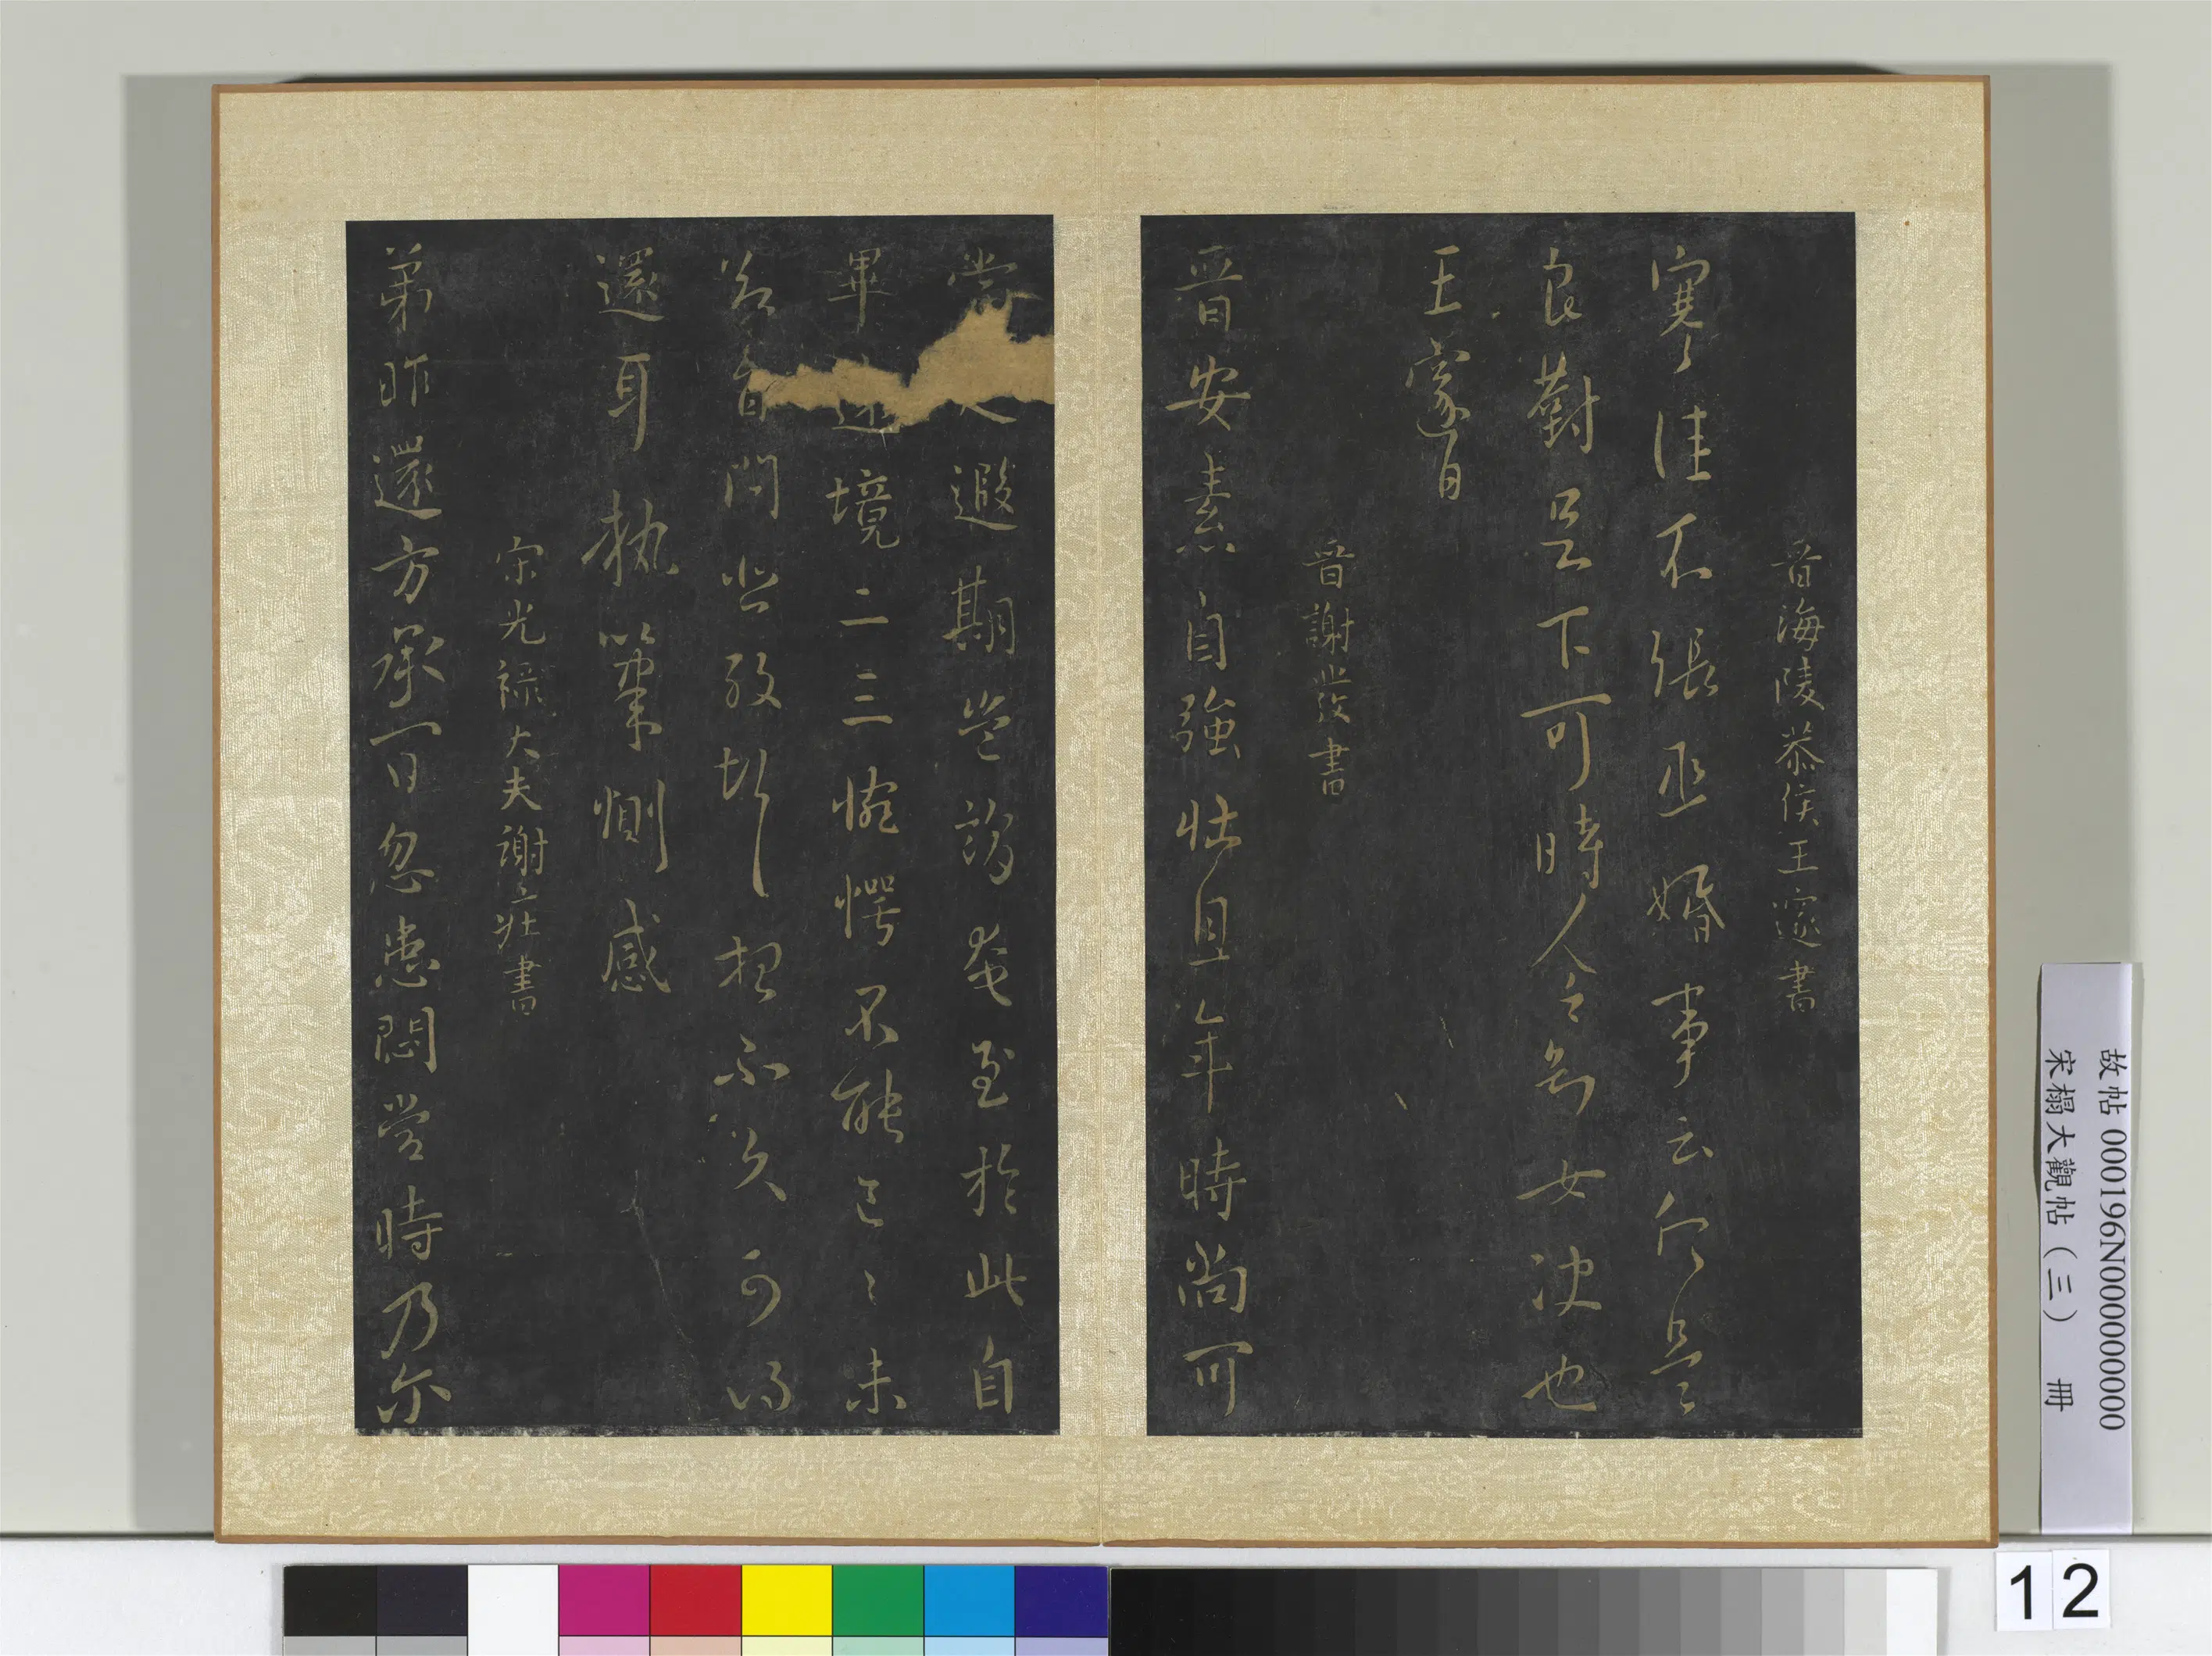 晉海陵恭侯王邃書
寒佳不張丞婚事云何是
良對足下可時人令知女決也
王邃白
晉謝發書
晉安素自強壯且年時尚可
當遐期豈謂奄至於此自
畢境二三惋愕不能已〻未
問悲想示次可得
還耳執筆惻感
宋光祿大夫謝莊書
弟昨還方承一日忽患悶當時乃尒
故帖 000196N000000000
宋榻大觀帖（三） 冊
12